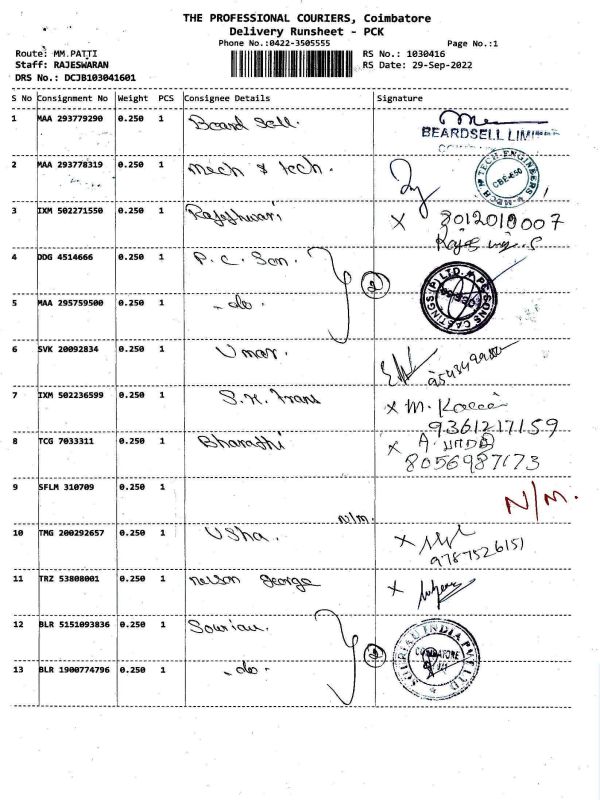 THE PROFESSIONAL COURIERS, Coimbatore
Delivery Runsheet - PCK
Phone No.:0422-3505555 Page No.:1
Route: MM.PATTI RS No.: 1030416
Staff: RAJESWARAN RS Date: 29-Sep-2022
DRS No.: DCJB103041601
S No Consignment No Weight PCS Consignee Details Signature
1 MAA 293779290 0.250 1 Beard Sell.
BEARDSELL LIMITED
2 MAA 293778319 0.250 1 Mech & Tech.
MECH N TECH ENGINEERS
3 IXM 502271550 0.250 1 Rajeshwari X 8012010007
4 DDG 4514666 0.250 1 P. C. Son. 2
PERSONS CASTINGS (P) LTD.
5 MAA 295759500 0.250 1 - do -
6 SVK 20092834 0.250 1 Umar.
7 IXM 502236599 0.250 1 S.K. Trans X M.
9361217159
8 TCG 7033311 0.250 1 Bharathi X A. பாரதி
8056987173
9 SFLM 310709 0.250 1 N/M. N/M.
10 TMG 200292657 0.250 1 Usha. X
9787526151
11 TRZ 53808001 0.250 1 Nelson George X
12 BLR 5151093836 0.250 1 Souriau. 2
SOURIAU INDIA PVT LTD
COIMBATORE
13 BLR 1900774796 0.250 1 - do -